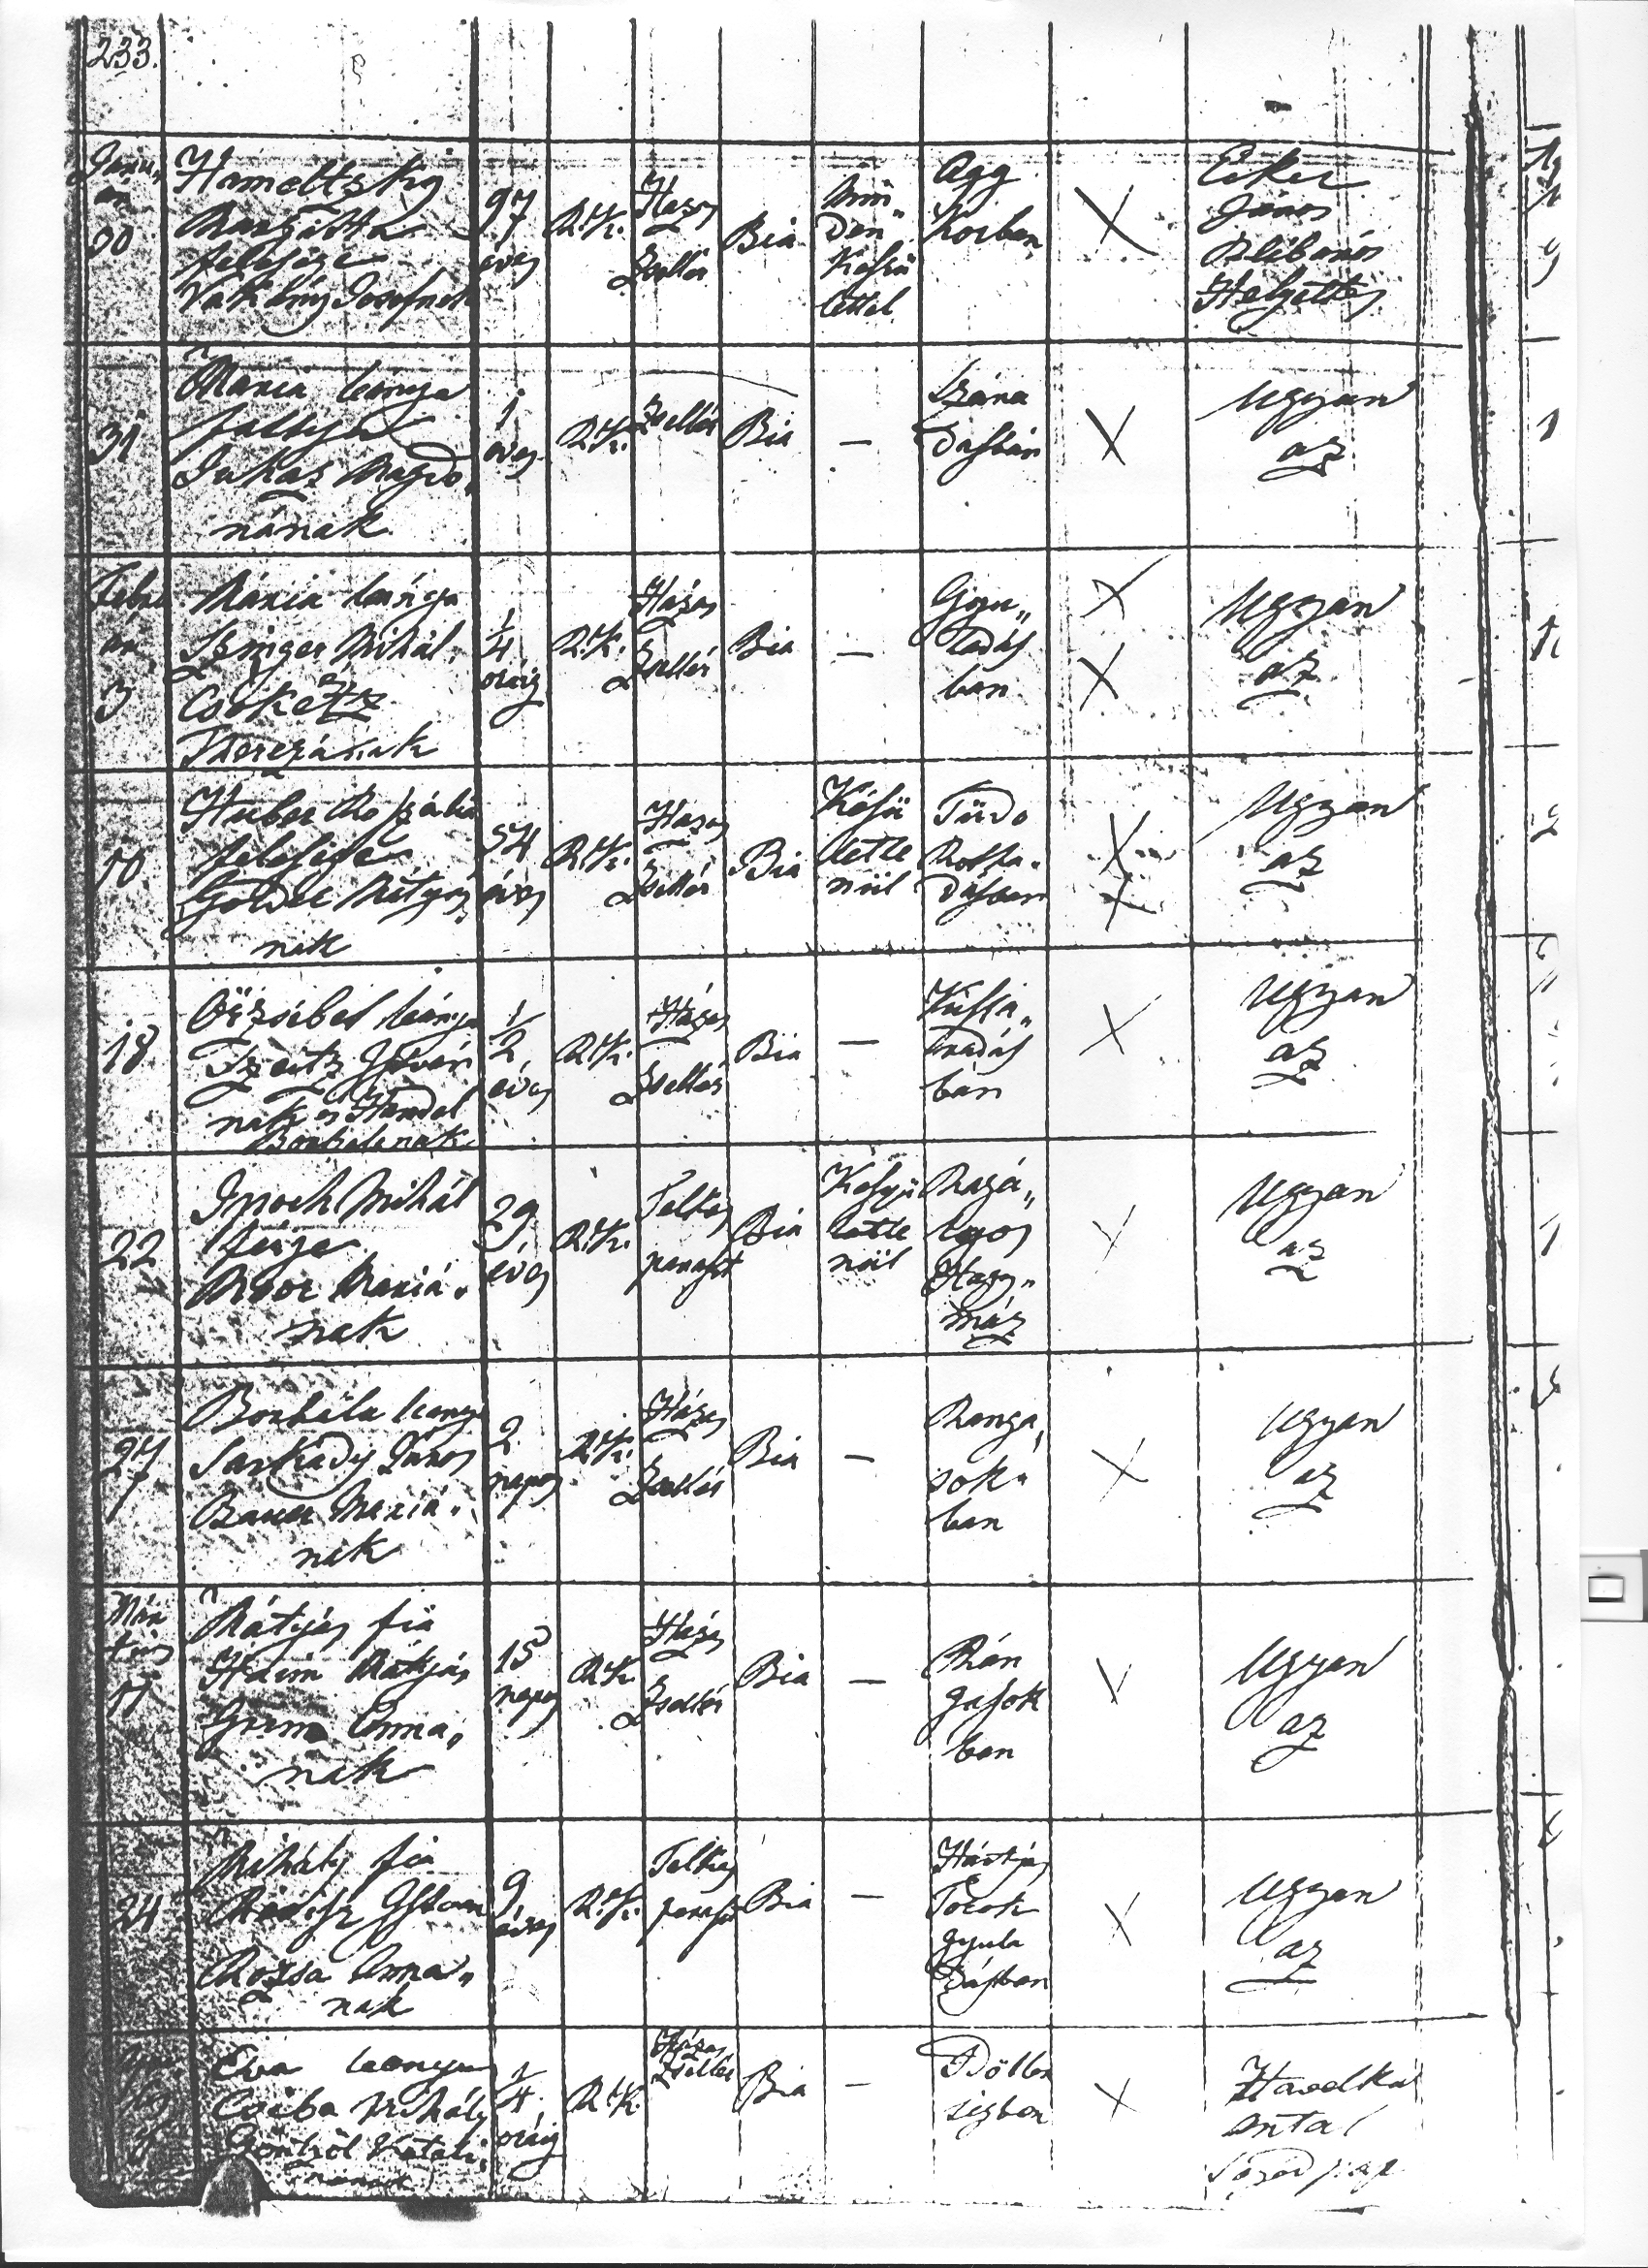 233.
Janu„
ár
30
Hameltzky
Margitta
felesége
Vaklány Josefnek
97
éves
R.K.
Hazas
Zsellér
Bia
Min„
den
Késsü
lettel
Agg
Korban
X
Eiker
János
Plébános
Helyettes
31
Mária leánya
Jukas Magdo„
nának
1
éves
R.K.
Zsellér
Bia
—
Száraz
Dasbán
X
Ugyan
az
Febru
ár
3
Mária leánya
Szinger Mihál
Csóketz
Therezának
1/4
óráig
R.K.
Házas
Zsellér
Bia
—
Gyu„
ladás
ban
X
X
Ugyan
az
10
Huber Rozzália
felesége
Godel Mátyás„
nak
54
éves
R.K.
Hazas
Zsellér
Bia
Késsü
letle
nül
Tüdo
Rotha„
dásban
X
X
Ugyan
az
18
Örzsébet leánya
Tzeitz István
nak es Handel
Borbalanak
1/2
éves
R.K.
Házas
Zsellér
Bia
—
ban
X
Ugyan
az
22
Mihál
férje
Moor Mariá„
nak
29
éves
R.K.
Telkes
paraszt
Bia
Keszü
letle
nül
Ragá„
lyos
Hagy„
máz
X
Ugyan
az
27
Borbála leanya
Sarkády János
Bauer Mariá„
nak
2
napos
R.K.
Házas
Zsellér
Bia
—
Ranga„
sok„
ban
X
Ugyan
az
Már
tius
17
Mátyás fia
Haim Mátyás
Grim Anna„
nak
15
napos
R.K.
Házas
Zsellér
Bia
—
Rán
gasok
ban
X
Ugyan
az
24
Mihály fia
Rózsa Anna„
nak
9
éves
R.K.
Telkes
paraszt
Bia
—
Hártyás
Torok
gyula
dásban
X
Ugyan
az
Éva leanya
Csiba Mihály
Katali„
1/4
óráig
R.K.
Házas
Zsellér
Bia
—
X
Havelka
Antal